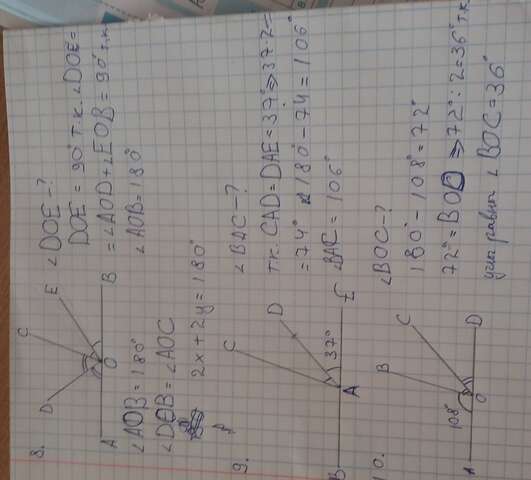 8.
D
C
E
A
O
B
∠DOE-?
DOE = 90° т.к. ∠DOE =
= ∠AOD + ∠EOB = 90° т.к.
∠AOB = 180°
∠AOB = 180°
∠DOB = ∠AOC
2x + 2y = 180°
9.
C
D
37°
B
A
E
∠BAC-?
т.к. CAD = DAE = 37° ⇒ 37·2 =
= 74° 180° - 74 = 106°
∠BAC = 106°
10.
B
C
108°
A
O
D
∠BOC-?
180° - 108° = 72°
72° = BOD ⇒ 72° : 2 = 36° т.к.
углы равны ∠BOC = 36°